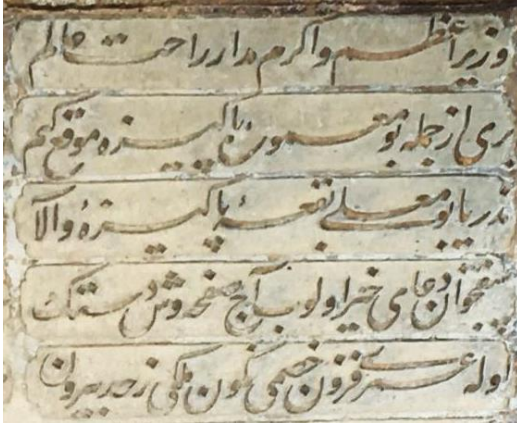 وزیر اعظم و اکرم مدار راحت عالم
بری از جمله بو معمورۀ پاکیزه موقع کم
ندر یا بو معلی بقعۀ پاکیزۀ والا
دعای خیر اولوب آچ صفحه وش دستک
اوله عمری فزون خصمی نگون ملکی ز حد بیرون